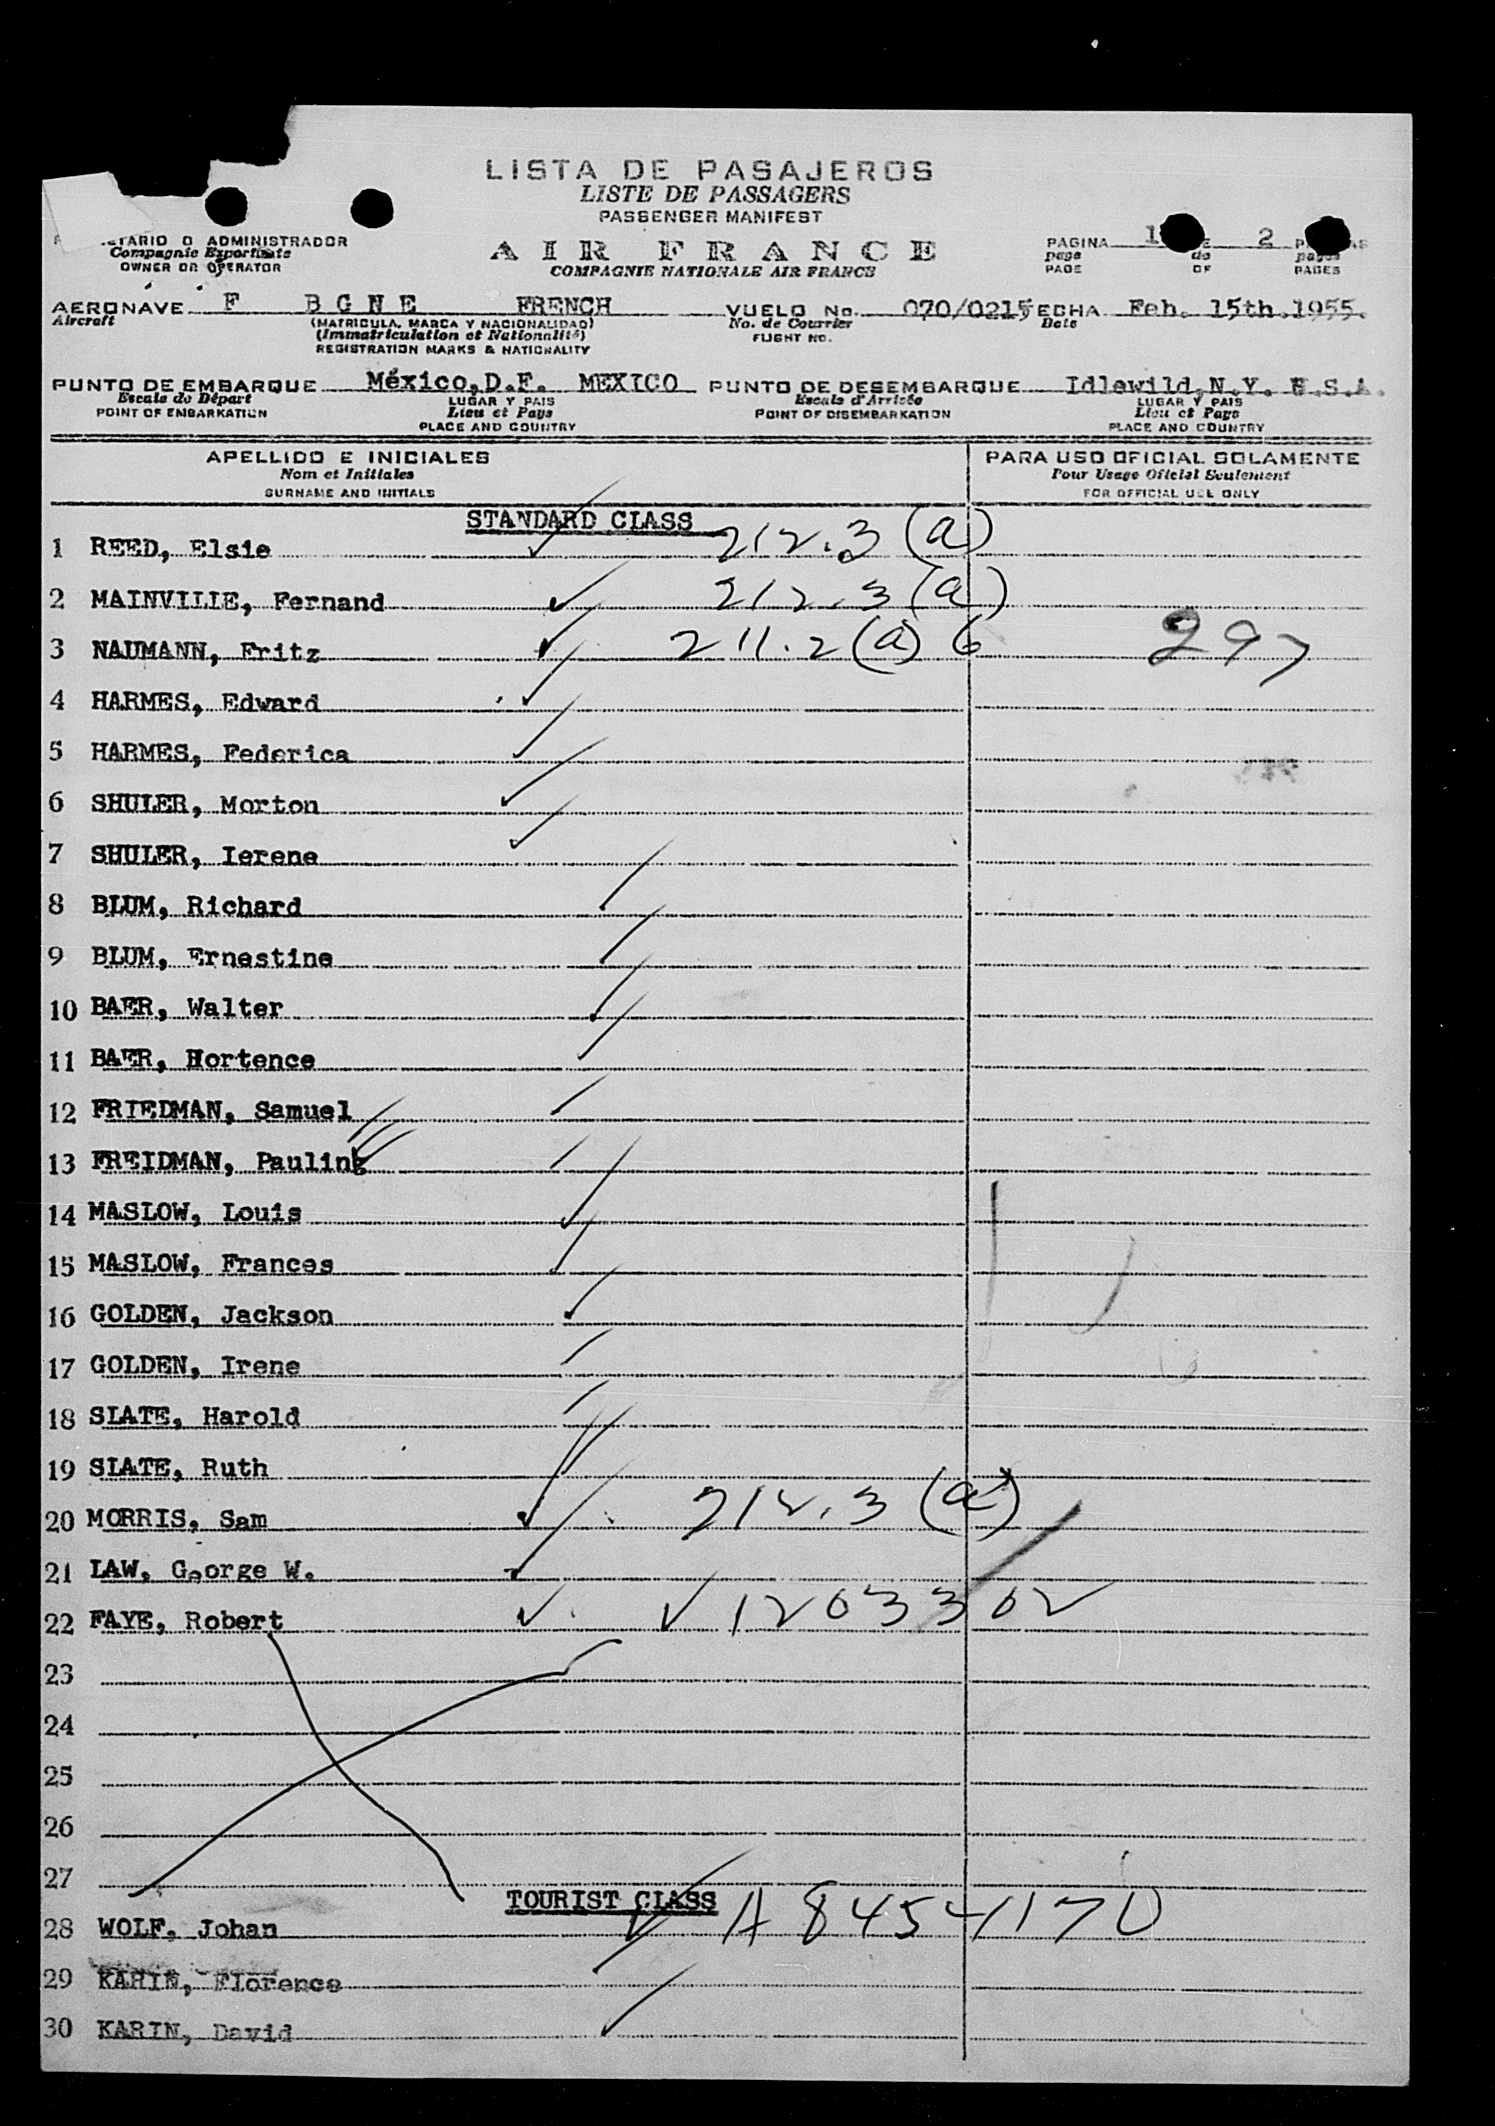 LISTA DE PASAJEROS
LISTE DE PASSAGERS
PASSENGER MANIFEST
O ADMINISTRADOR
Compagnie
OWNER OR OPERATOR
AIR FRANCE
COMPAGNIE NATIONALE AIR FRANCE
PAGINA 1 2
page de pages
PAGE OF PAGES
AERONAVE F BGNE FRENCH VUELO No. 070/0215 FECHA Feb. 15th.1955.
Aircraft (MATRICULA, MARCA Y NACIONALIDAD) No. de Courrier Date
(Immatriculation et Nationalité) FLIGHT NO.
REGISTRATION MARKS & NATIONALITY
PUNTO DE EMBARQUE México,D.F. MEXICO PUNTO DE DESEMBARQUE Idlewild,N.Y. U.S.A.
Escale de Départ LUGAR Y PAIS Escale d'Arrivée LUGAR Y PAIS
POINT OF EMBARKATION Lieu et Pays POINT OF DISEMBARKATION Lieu et Pays
PLACE AND COUNTRY PLACE AND COUNTRY
APELLIDO E INICIALES PARA USO OFICIAL SOLAMENTE
Nom et Initiales Pour Usage Oficiel Seulement
SURNAME AND INITIALS FOR OFFICIAL USE ONLY
STANDARD CLASS
1 REED, Elsie 212.3 (a)
2 MAINVILLE, Fernand 212.3 (a)
3 NAUMANN, Fritz 211.2 (a) 6 297
4 HARMES, Edward
5 HARMES, Federica
6 SHULER, Morton
7 SHULER, Ierene
8 BLUM, Richard
9 BLUM, Ernestine
10 BAER, Walter
11 BAER, Hortence
12 FRIEDMAN, Samuel
13 FREIDMAN, Pauling
14 MASLOW, Louis
15 MASLOW, Frances
16 GOLDEN, Jackson
17 GOLDEN, Irene
18 SLATE, Harold
19 SLATE, Ruth
20 MORRIS, Sam 212.3 (a)
21 LAW, George W.
22 FAYE, Robert 1203302
23
24
25
26
27
TOURIST CLASS
28 WOLF, Johan A 8454170
29 KARIN, Florence
30 KARIN, David